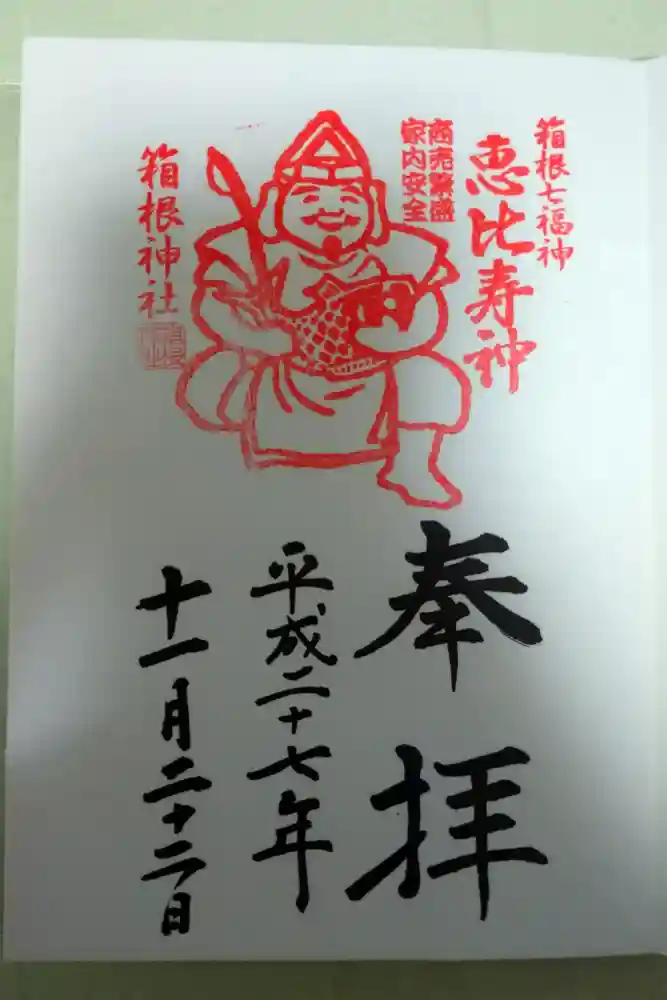 箱根七福神
恵比寿神
商売繁盛
家内安全
箱根神社
奉拝
平成二十七年
十一月二十二日